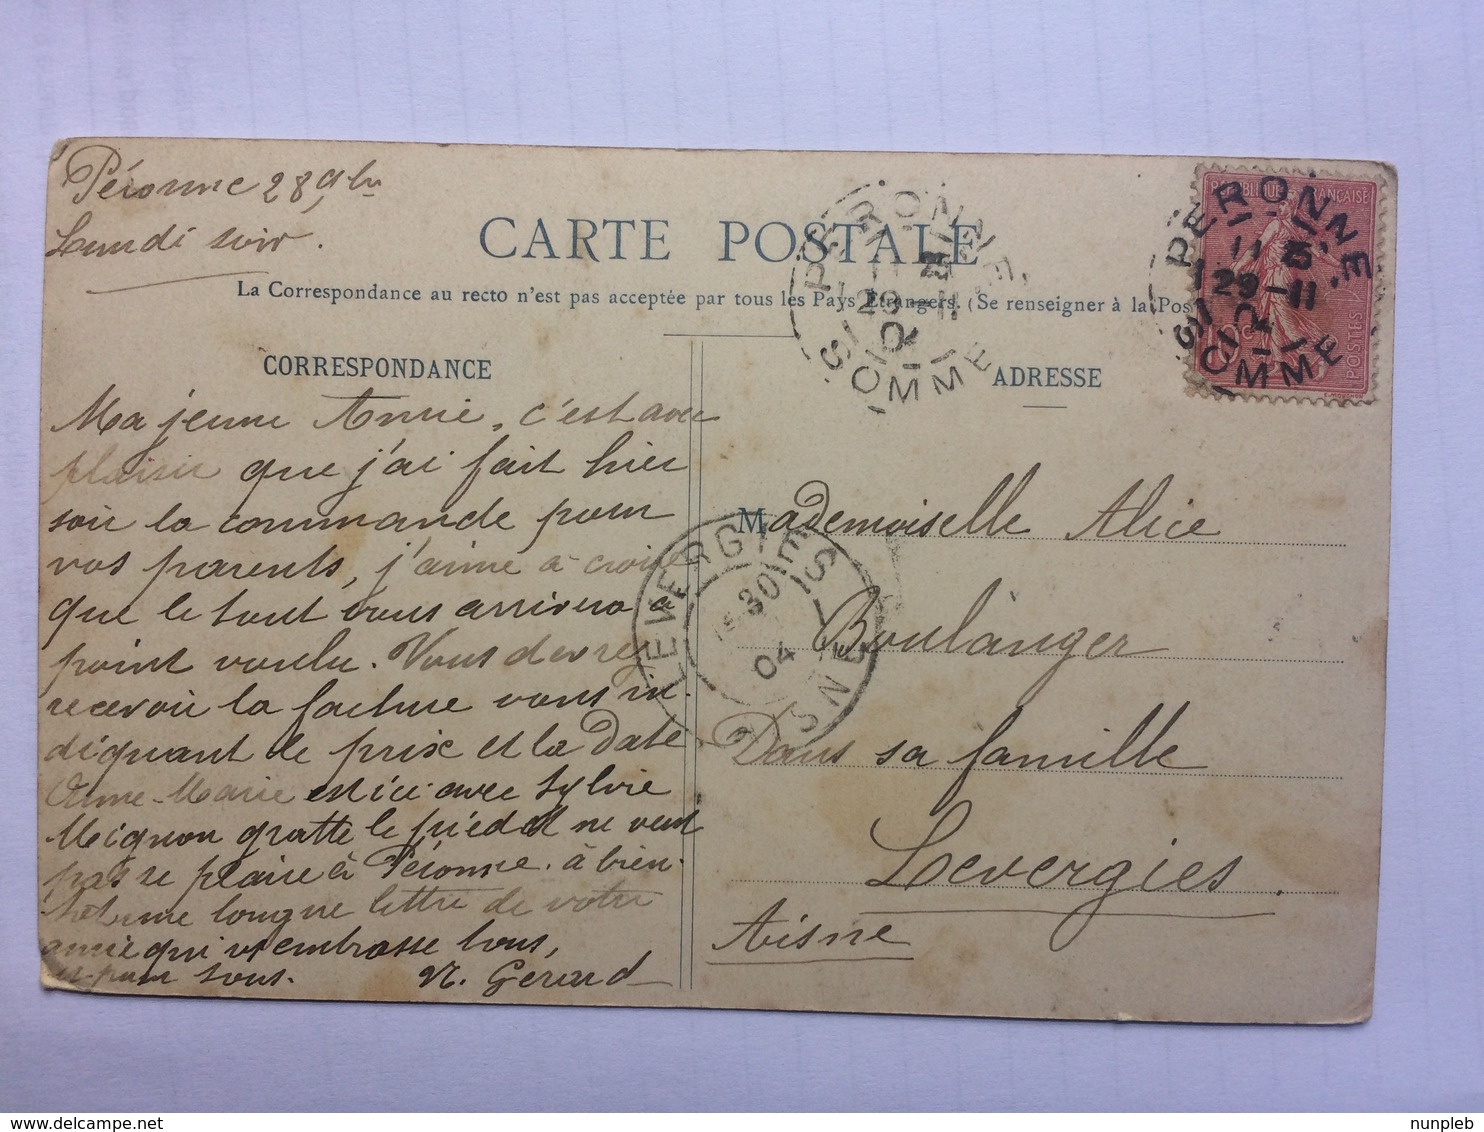 Péronne 28 9bre
Lundi soir.
CARTE POSTALE
La Correspondance au recto n'est pas acceptée par tous les Pays Etrangers. (Se renseigner à la Pos
CORRESPONDANCE
Ma jeune Amie, c'est avec
plaisir que j'ai fait hier
soir la commande pour
vos parents, j'aime à croire
que le tout vous arrivera à
point voulu. Vous devrez
recevoir la facture vous in-
diquant le prix et la date
Anne-Marie est ici avec Sylvie
Mignon gratte le pied et ne veut
pas se plaire à Péronne. à bien-
tôt une longue lettre de votre
amie qui v embrasse tous,
pour tous.
N. Gerard
ADRESSE
Mademoiselle Alice
Boulanger
Dans sa famille
Levergies.
Aisne
PERONNE
29-11
SOMME
PERONNE
11 5
29-11
SOMME
REPUBLIQUE FRANÇAISE
10c
POSTES
E. MOUCHON
LEVERGIES
30
04
AISNE
nunpleb